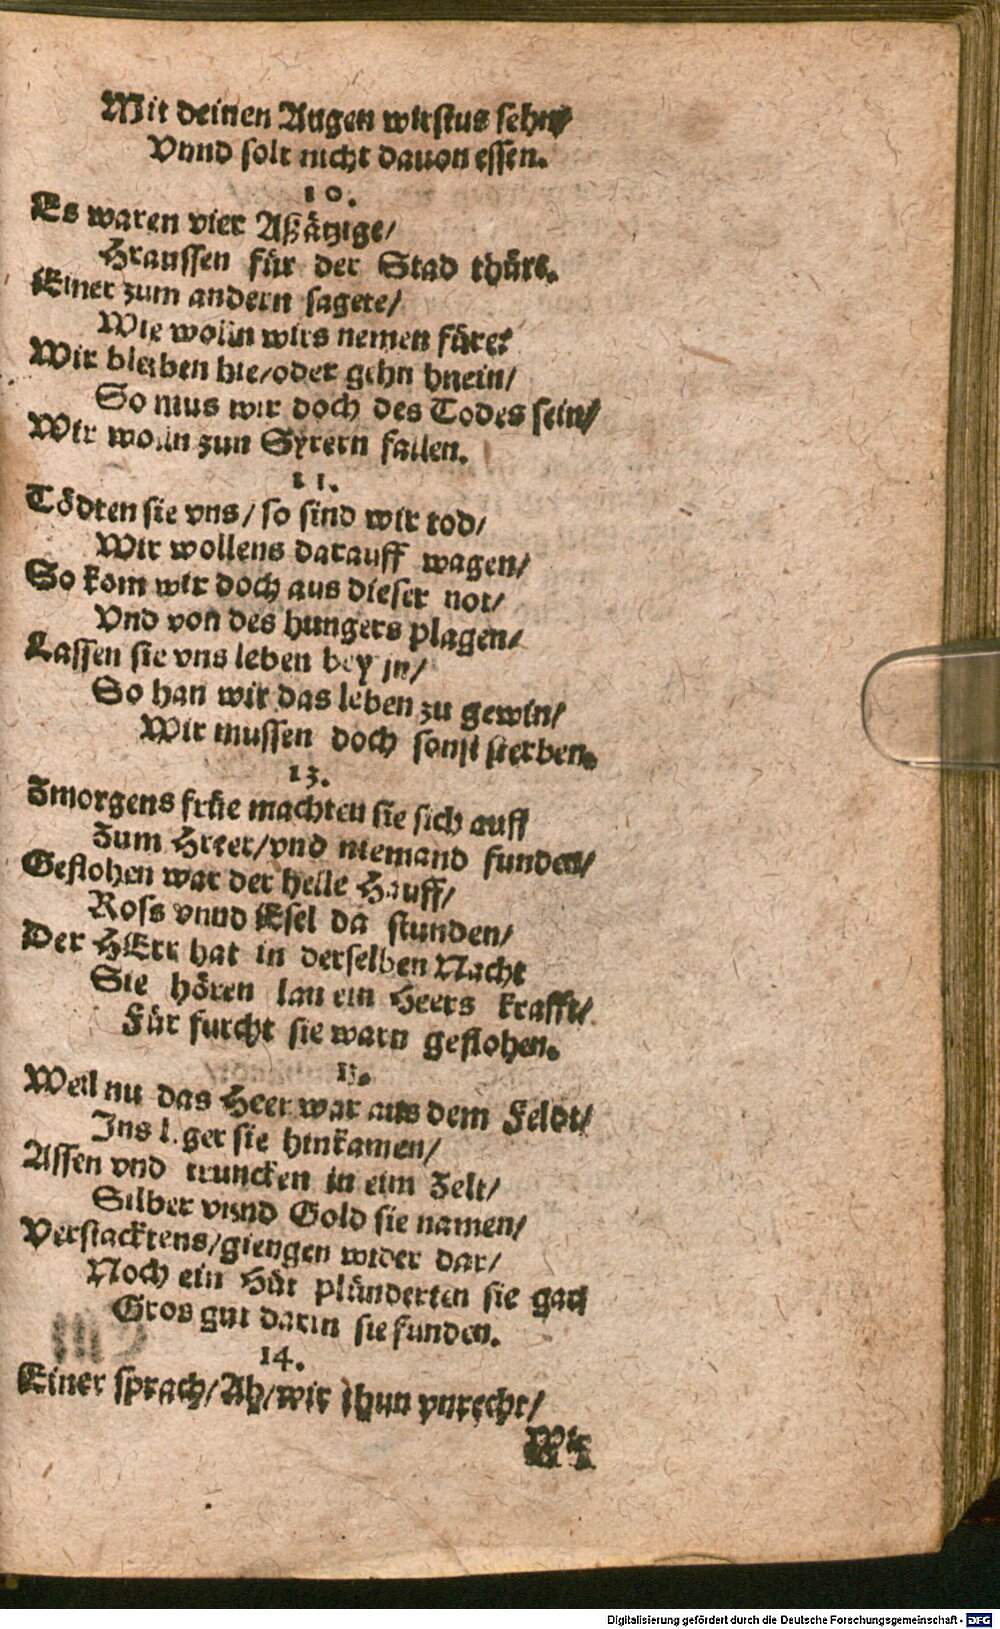 Mit deinen Augen wirstus sehn/
Vnnd solt nicht dauon essen.
10.
Es waren vier Aßätzige/
Hraussen für der Stad thürs.
Einer zum andern sagete/
Wie wolln wirs nemen füre?
Wir bleiben hie/oder gehn hnein/
So mus wir doch des Todes sein/
Wir wolln zun Syrern fallen.
11.
Tödten sie vns/ so sind wir tod/
Wir wollens darauff wagen/
So kom wir doch aus dieser not/
Vnd von des hungers plagen/
Lassen sie vns leben bey jn/
So han wir das leben zu gewin/
Wir mussen doch sonst sterben.
13.
Zmorgens früe machten sie sich auff
Zum Hreer/vnd niemand funden/
Geflohen war der helle Hauff/
Ross vnnd Esel da stunden/
Der HErr hat in derselben Nacht
Sie hören lan ein Heers krafft/
Für furcht sie warn geflohen.
13.
Weil nu das Heer war aus dem Feldt/
Ins Lger sie hinkamen/
Assen vnd truncken in eim Zelt/
Silber vnnd Gold sie namen/
Verstacktens/giengen wider dar/
Noch ein Hüt plünderten sie gar/
Gros gut darin sie funden.
14.
Einer sprach/Ah/wir thun vnrecht/
Wir
Digitalisierung gefördert durch die Deutsche Forschungsgemeinschaft - DFG